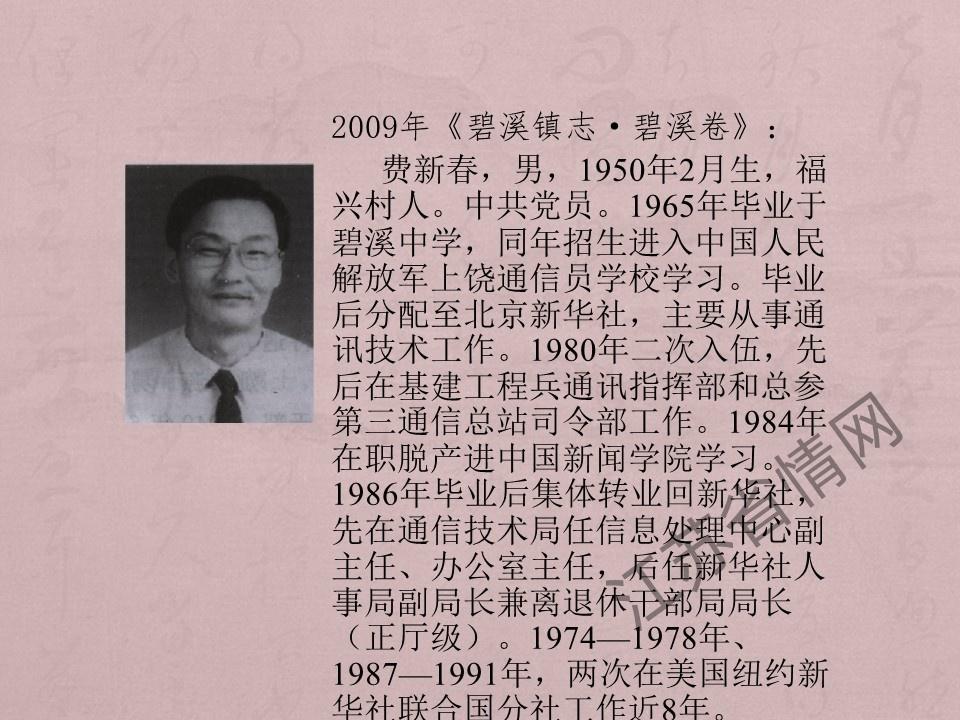 2009年《碧溪镇志·碧溪卷》：
费新春，男，1950年2月生，福
兴村人。中共党员。1965年毕业于
碧溪中学，同年招生进入中国人民
解放军上饶通信员学校学习。毕业
后分配至北京新华社，主要从事通
讯技术工作。1980年二次入伍，先
后在基建工程兵通讯指挥部和总参
第三通信总站司令部工作。1984年
在职脱产进中国新闻学院学习。
1986年毕业后集体转业回新华社，
先在通信技术局任信息处理中心副
主任、办公室主任，后任新华社人
事局副局长兼离退休干部局局长
（正厅级）。1974—1978年、
1987—1991年，两次在美国纽约新
华社联合国分社工作近8年。
江苏省情网